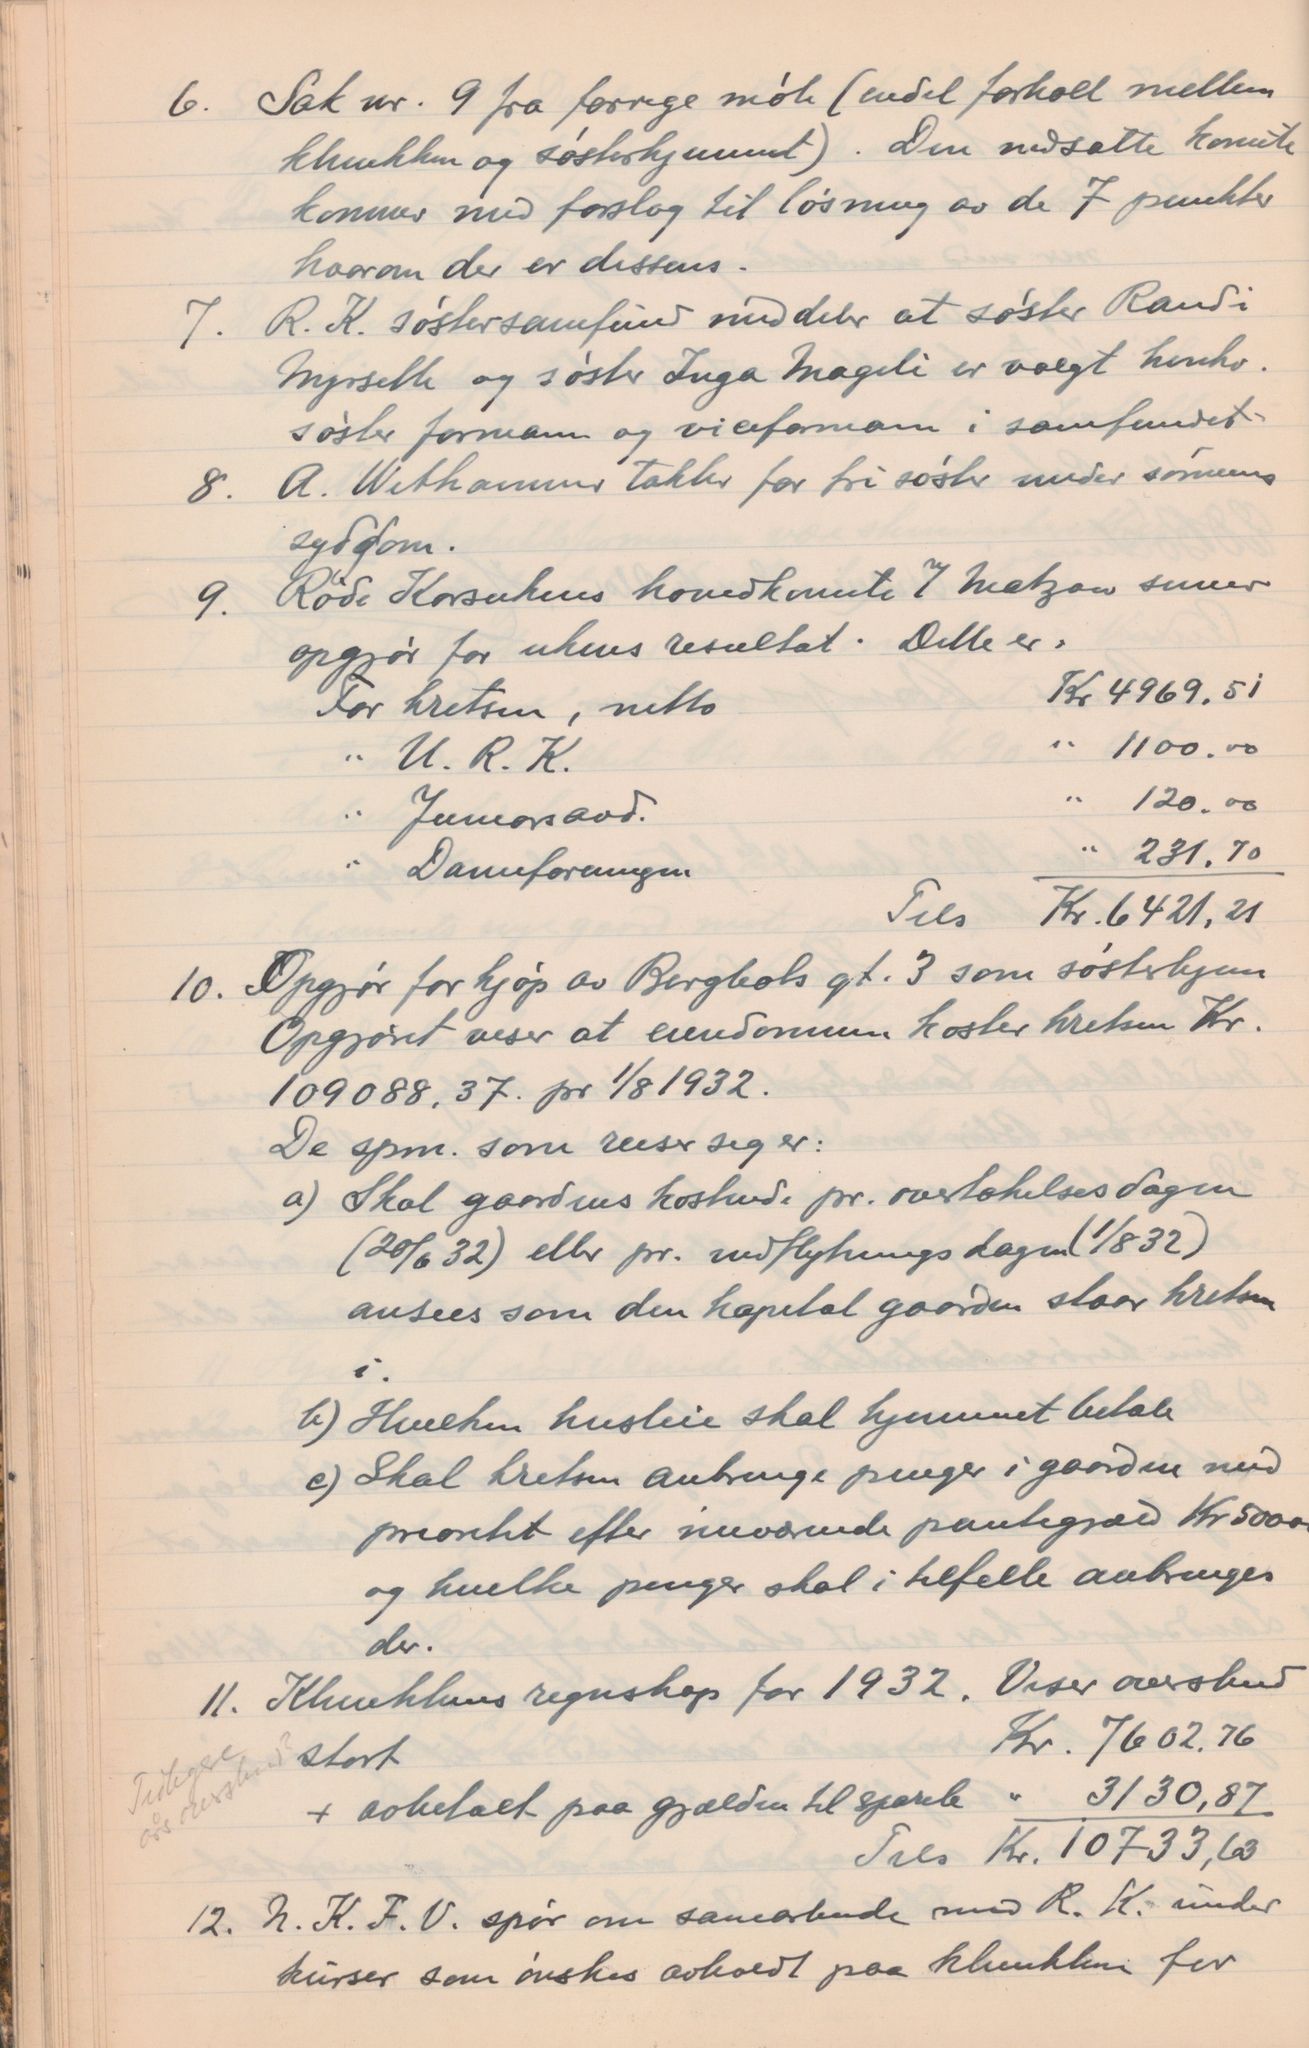 6. Sak nr. 9 fra forrige møte (endel forhold mellem
klinikken og søsterhjemmet). Den nedsatte komite
kommer med forslag til løsning av de 7 punkter
hvorom der er dissens.
7. R. K. søstersamfund meddeler at søster Randi
Myrseth og søster Inga Mageli er valgt henhv.
søster formann og viceformann i samfundet.
8. A. Wethammer takker for fri søster under sønnens
sygdom.
9. Røde Korsukens hovedkomite Matzow
opgjør for ukens resultat. Dette er.
For kretsen, netto Kr 4969.51
" U. R. K. " 1100.00
" Juniorsavd. " 120.00
" Dameforeningen " 231.70
Tils Kr. 6421,21
10. Opgjør for kjøp av Bergliots gt. 3 som søsterhjem
Opgjøret viser at eiendommen koster kretsen Kr.
109088,37. pr 1/8 1932.
De spm. som reiser seg er:
a) Skal gaardens kostende pr. overtakelsesdagen
(20/6 32) eller pr. indflytningsdagen (1/8 32)
ansees som den kapital gaarden staar kretsen
i.
b) Hvilken husleie skal hjemmet betale
c) Skal kretsen anbringe penger i gaarden med
prioritet efter inværende pantegjæld Kr 5000
og hvilke penger skal i tilfelle anbringes
der.
11. Klinikkens regnskap for 1932. Viser overskud
stort Kr. 7602.76
+ avbetalt paa gjælden til spareb " 3130,87
Tils Kr. 10733,63
Tidligere
års overskud?
12. N. K. F. V. spør om samarbeide med R. K. under
kurser som ønskes avholdt paa klinikken for